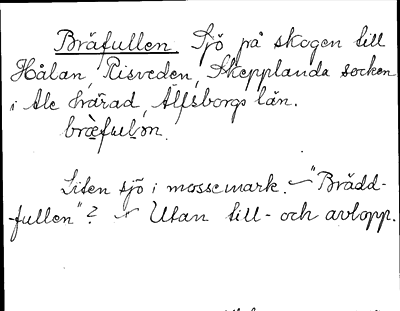 Bräfullen Sjö på skogen till
Hålan, Risveden, Skepplanda socken
i Ale härad, Älfsborgs län.
bræ̀fulən.
Liten sjö i mossemark. — "Brädd-
fullen"? — Utan till- och avlopp.